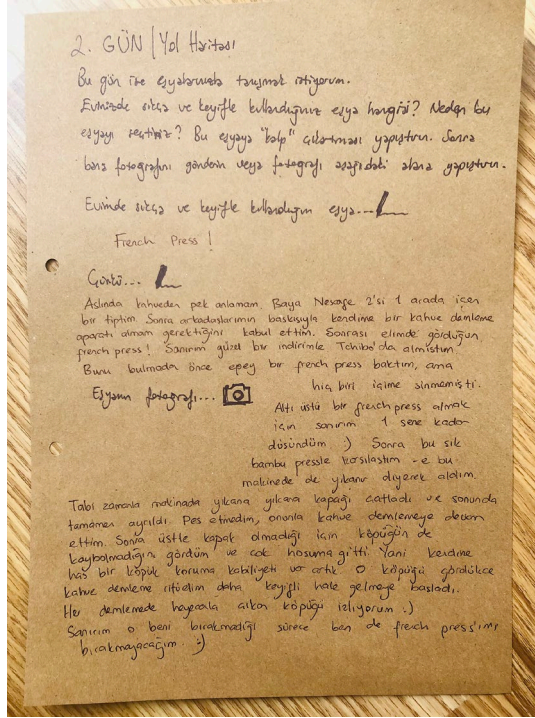 2. GÜN | Yol Haritası
Bu gün ise eşyalarınızla tanışmak istiyorum.
Evinizde sıkça ve keyifle kullandığınız eşya hangisi? Neden bu
eşyayı seçtiniz? Bu eşyaya "kalp" çıkartması yapıştırın. Sonra
bana fotoğrafını gönderin veya fotoğrafı aşağıdaki alana yapıştırın.
Evimde sıkça ve keyifle kullandığım eşya...
French Press!
Çünkü...
Aslında kahveden pek anlamam, Baya Nescafe 2'si 1 arada içen
bir tiptim. Sonra arkadaşlarımın baskısıyla kendime bir kahve demleme
aparatı almam gerektiğini kabul ettim. Sonrası elimde gördüğün
french press! Sanırım güzel bir indirimle Tchibo'da almıştım.
Bunu bulmada önce epey bir french press baktım, ama
hiç biri içime sinmemişti.
Eşyanın fotoğrafı...
Altı üstü bir french press almak
için sanırım 1 sene kadar
düşündüm :) Sonra bu şık
bambu pressle karşılaştım - e bu
makinede de yıkanır diyerek aldım.
Tabi zamanla makinada yıkana yıkana kapağı çatladı ve sonunda
tamamen ayrıldı. Pes etmedim, onunla kahve demlemeye devam
ettim. Sonra üstte kapak olmadığı için köpüğün de
kaybolmadığını gördüm ve çok hoşuma gitti. Yani kendine
has bir köpük koruma kabiliyeti var artık. O köpüğü gördükçe
kahve demleme ritüelim daha keyifli hale gelmeye başladı.
Her demlemede heyecanla çıkan köpüğü izliyorum :)
Sanırım o beni bırakmadığı sürece ben de french press'imi
bırakmayacağım. :)